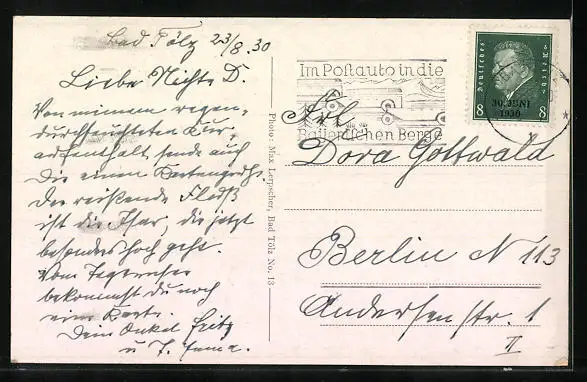 Bad Tölz 23/8. 30
Liebe Nichte D.
Von meinem regen-
durchfeuchteten Kur-
aufenthalt sende auch
Dir einen Kartengruß.
Der reißende Fluß
ist die Isar, die jetzt
besonders hoch geht.
Vom Tegernsee
bekommst du noch
eine Karte.
Dein Onkel Fritz
u. T.
Photo: Max Lerpscher, Bad Tölz No. 13
Im Postauto in die
Bayerischen Berge
Deutsches Reich
30. JUNI
1930
8 8
Frl.
Dora Gottwald
Berlin N 113
Andersenstr. 1
II